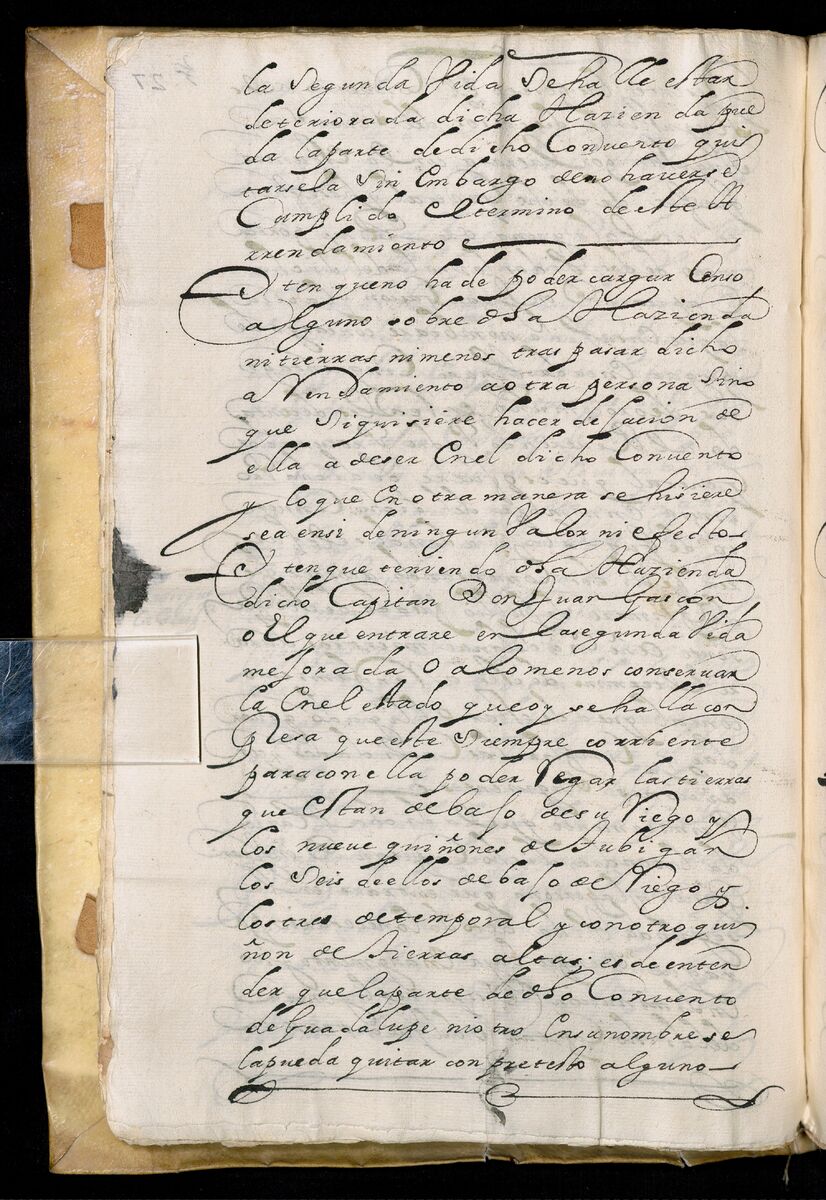 la Segunda Vida Sehalle estar
deteriorada dicha Hazienda pue
da laparte dedicho Convento qui
tarsela Sin Embargo deno haverse
Cumplido eltermino deeste A
rrendamiento
Yten queno hade poder cargar Censo
alguno sobre dha Hazienda
nitierras nimenos traspasar dicho
arrendamiento aotra persona Sino
que Siquisiere hacer desacion de
ella adeser Enel dicho Convento
y loque Enotra manera sehisiere
sea ensi deningun Valor niefecto
Yten que teniendo dha Hazienda
dicho Capitan Don Juan Gascon
o El que entrare en lasegunda Vida
mejorada O alomenos conservar
la Enel estado queoy sehalla con
Presa queeste Siempre corriente
paraconella poder Regar lastierras
que Estan debajo desu Riego y
los nueve quiñones de Jubigar
los Seis deellos debajo de Riego y
lostres detemporal y conotro qui
ñon de tierras altas; es deenten
der que laparte dedho Convento
deGuadalupe niotro Ensunombre se
lapueda quitar con pretesto alguno